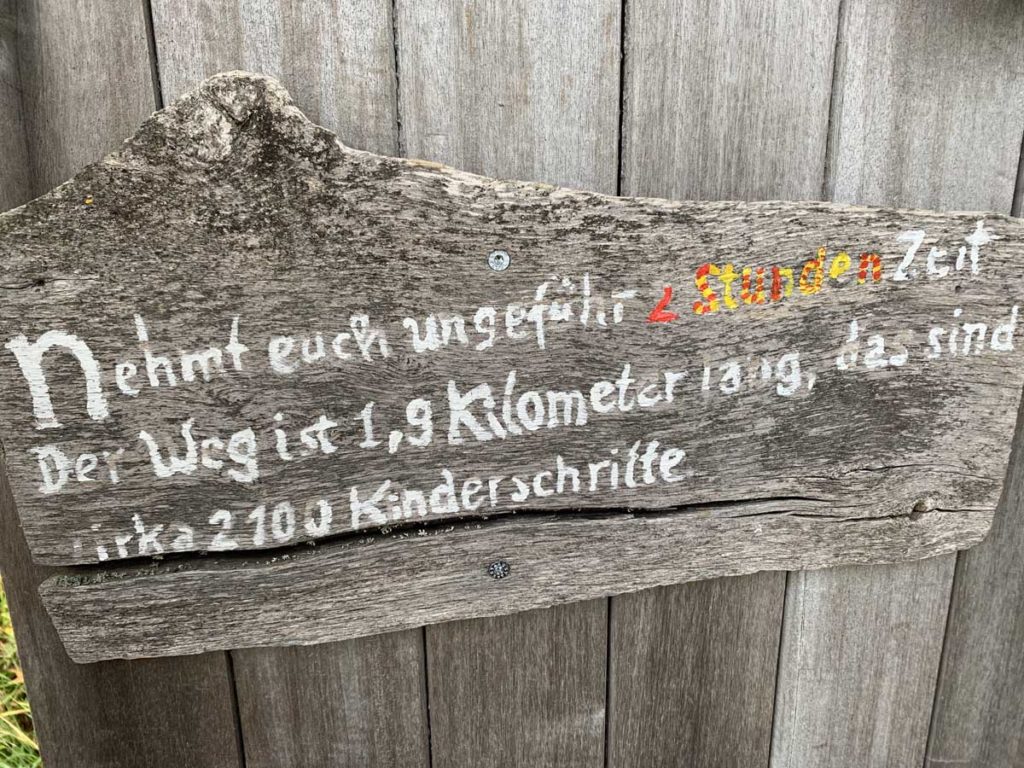 Nehmt euch ungefähr 2 Stunden Zeit
Der Weg ist 1,9 Kilometer lang, das sind
zirka 2100 Kinderschritte